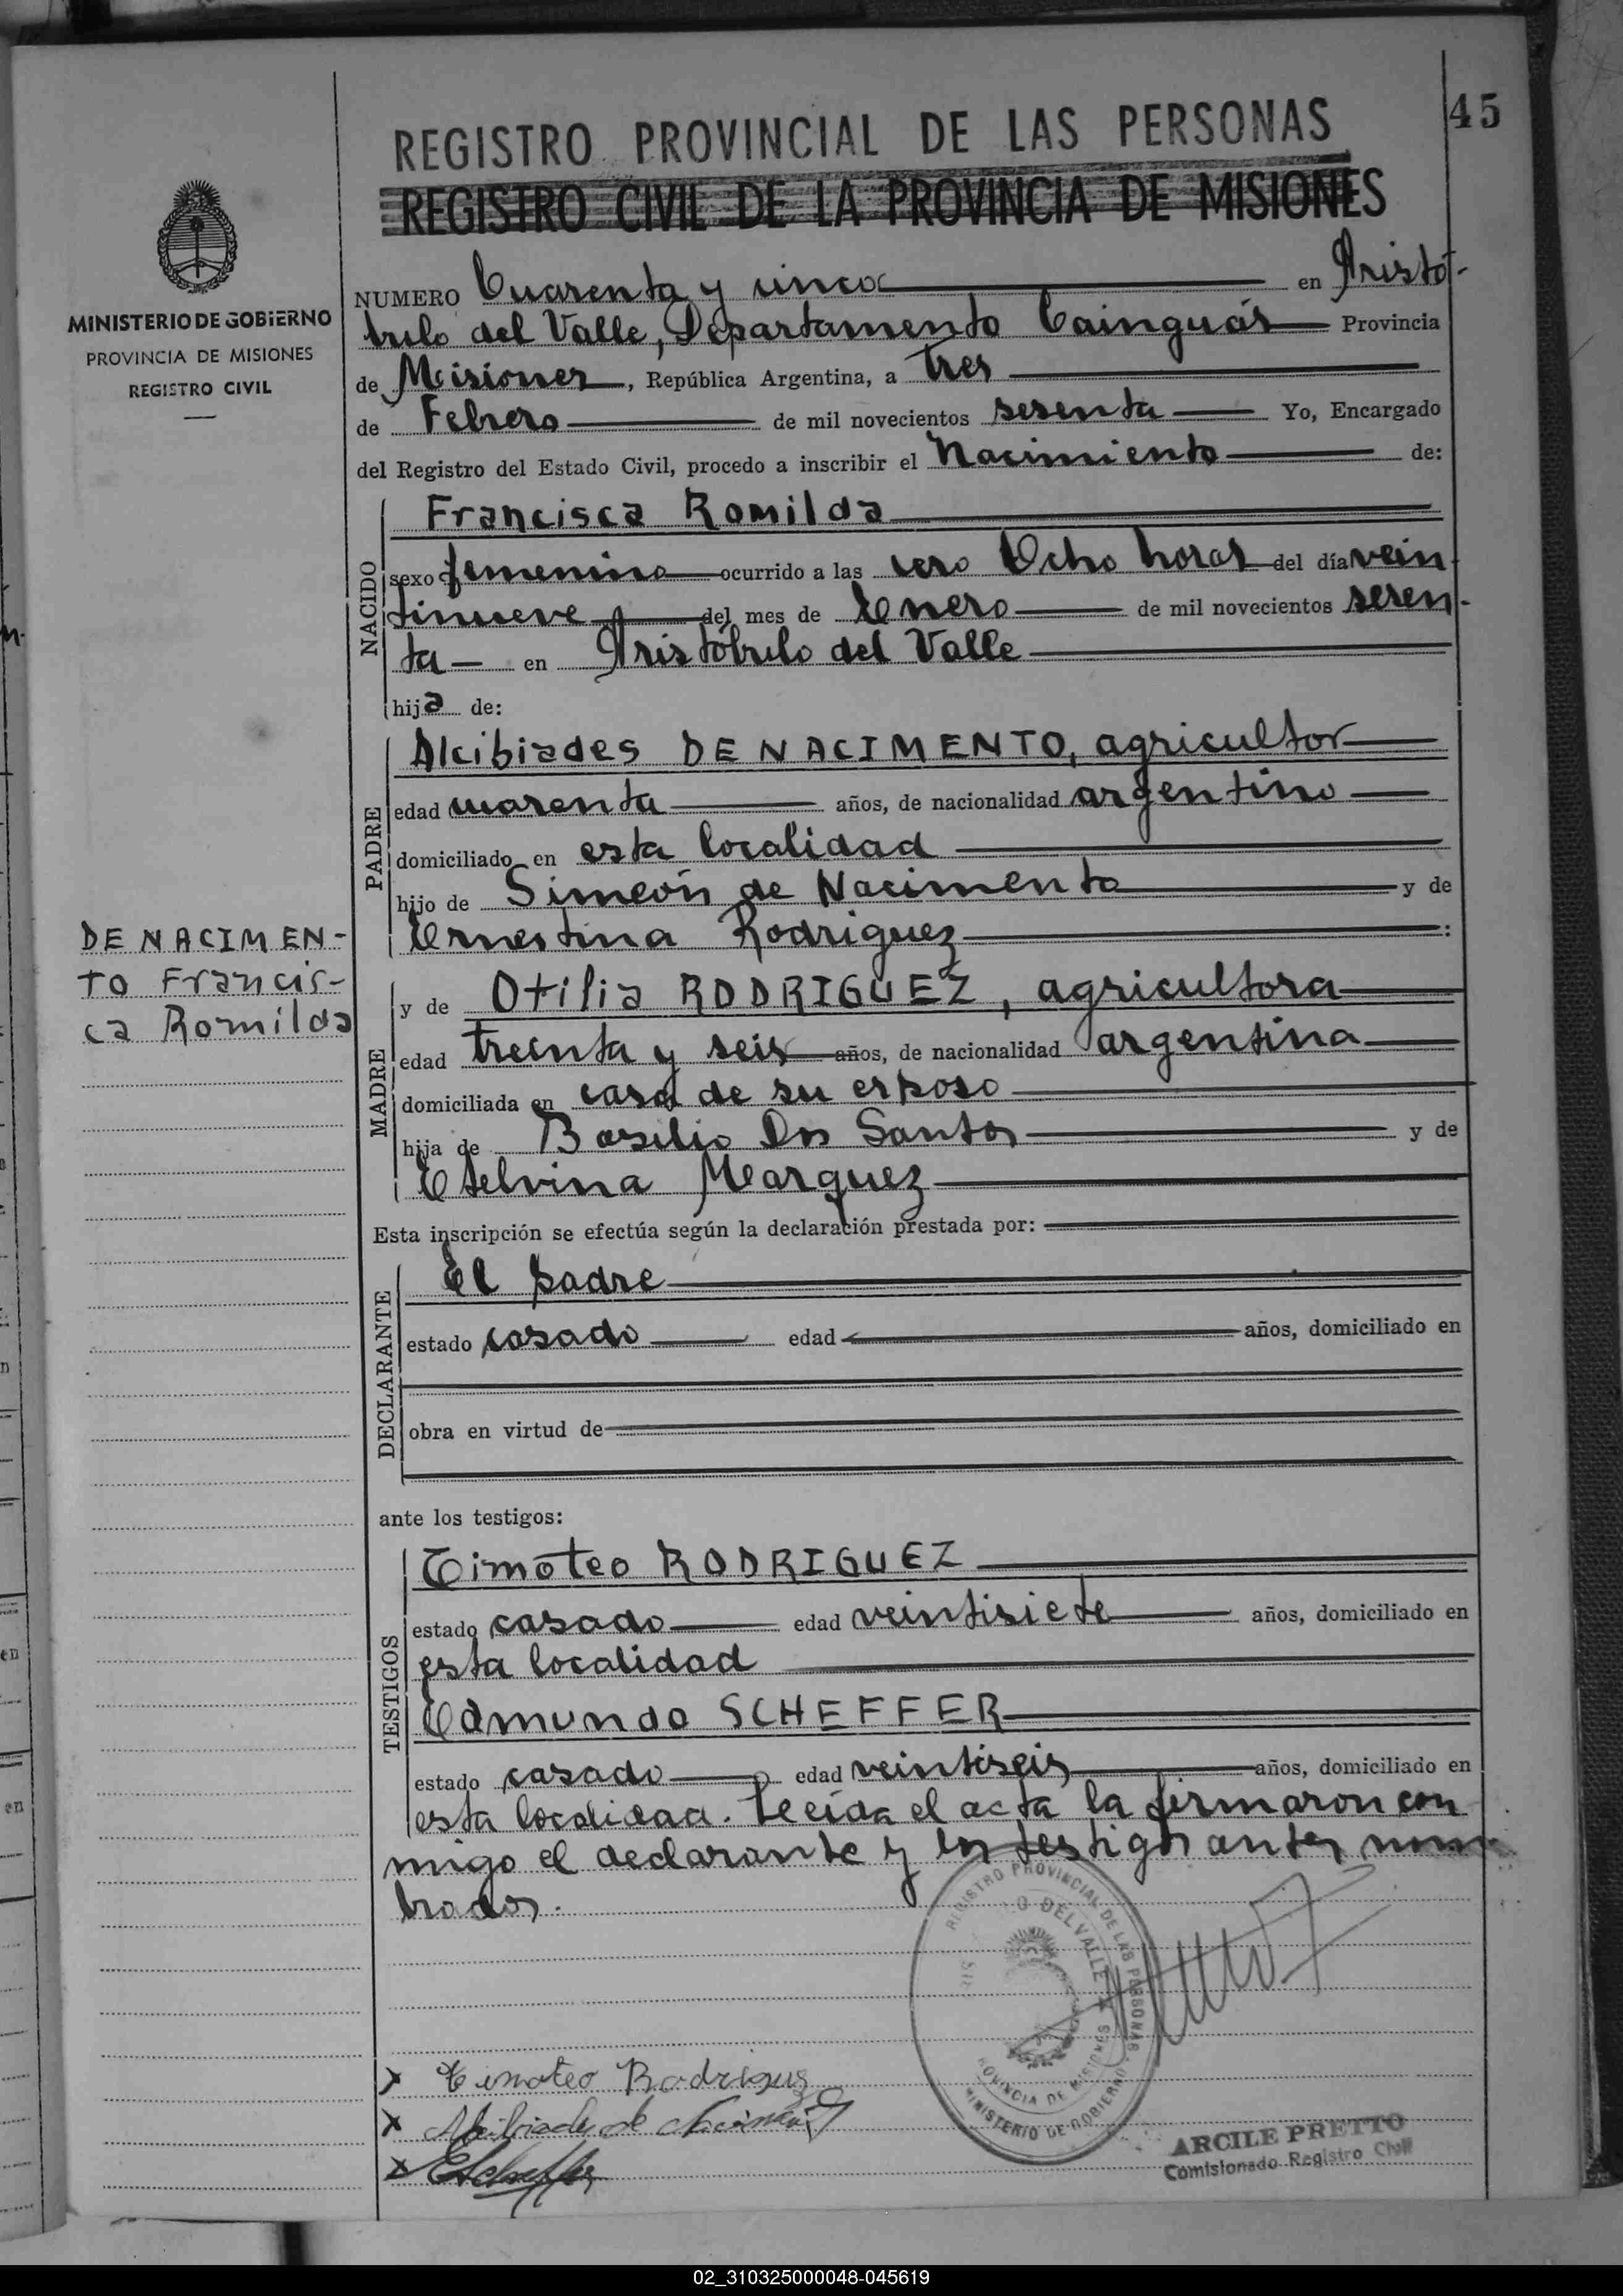 45
REGISTRO PROVINCIAL DE LAS PERSONAS
REGISTRO CIVIL DE LA PROVINCIA DE MISIONES
MINISTERIO DE GOBIERNO
PROVINCIA DE MISIONES
REGISTRO CIVIL
NUMERO Cuarenta y cinco en Aristó-
bulo del Valle, Departamento Cainguás Provincia
de Misiones, República Argentina, a tres
de Febrero de mil novecientos sesenta Yo, Encargado
del Registro del Estado Civil, procedo a inscribir el Nacimiento de:
NACIDO
Francisca Romilda
sexo femenino ocurrido a las cero Ocho horas del día vein
tinueve del mes de Enero de mil novecientos sesen-
ta en Aristóbulo del Valle
hija de:
PADRE
Alcibiades DE NACIMENTO, agricultor
edad cuarenta años, de nacionalidad argentino
domiciliado en esta localidad
hijo de Simeón de Nacimento y de
Ernestina Rodriguez :
DE NACIMEN-
TO Francis-
ca Romilda
MADRE
y de Otilia RODRIGUEZ, agricultora
edad treinta y seis años, de nacionalidad argentina
domiciliada en casa de su esposo
hija de Basilio Dos Santos y de
Etelvina Marquez
Esta inscripción se efectúa según la declaración prestada por:
DECLARANTE
El padre
estado casado edad años, domiciliado en
obra en virtud de
ante los testigos:
TESTIGOS
Timoteo RODRIGUEZ
estado casado edad veintisiete años, domiciliado en
esta localidad
Edmundo SCHEFFER
estado casado edad veintiseis años, domiciliado en
esta localidad. Leída el acta la firmaron con
migo el declarante y los testigos antes nom
brados.
REGISTRO PROVINCIAL DE LAS PERSONAS
O DEL VALLE
PROVINCIA DE MISIONES
MINISTERIO DE GOBIERNO
x Timoteo Rodriguez
x Alcibiades de Nacimento
x EScheffer
ARCILE PRETTO
Comisionado Registro Civil
02_310325000048-045619